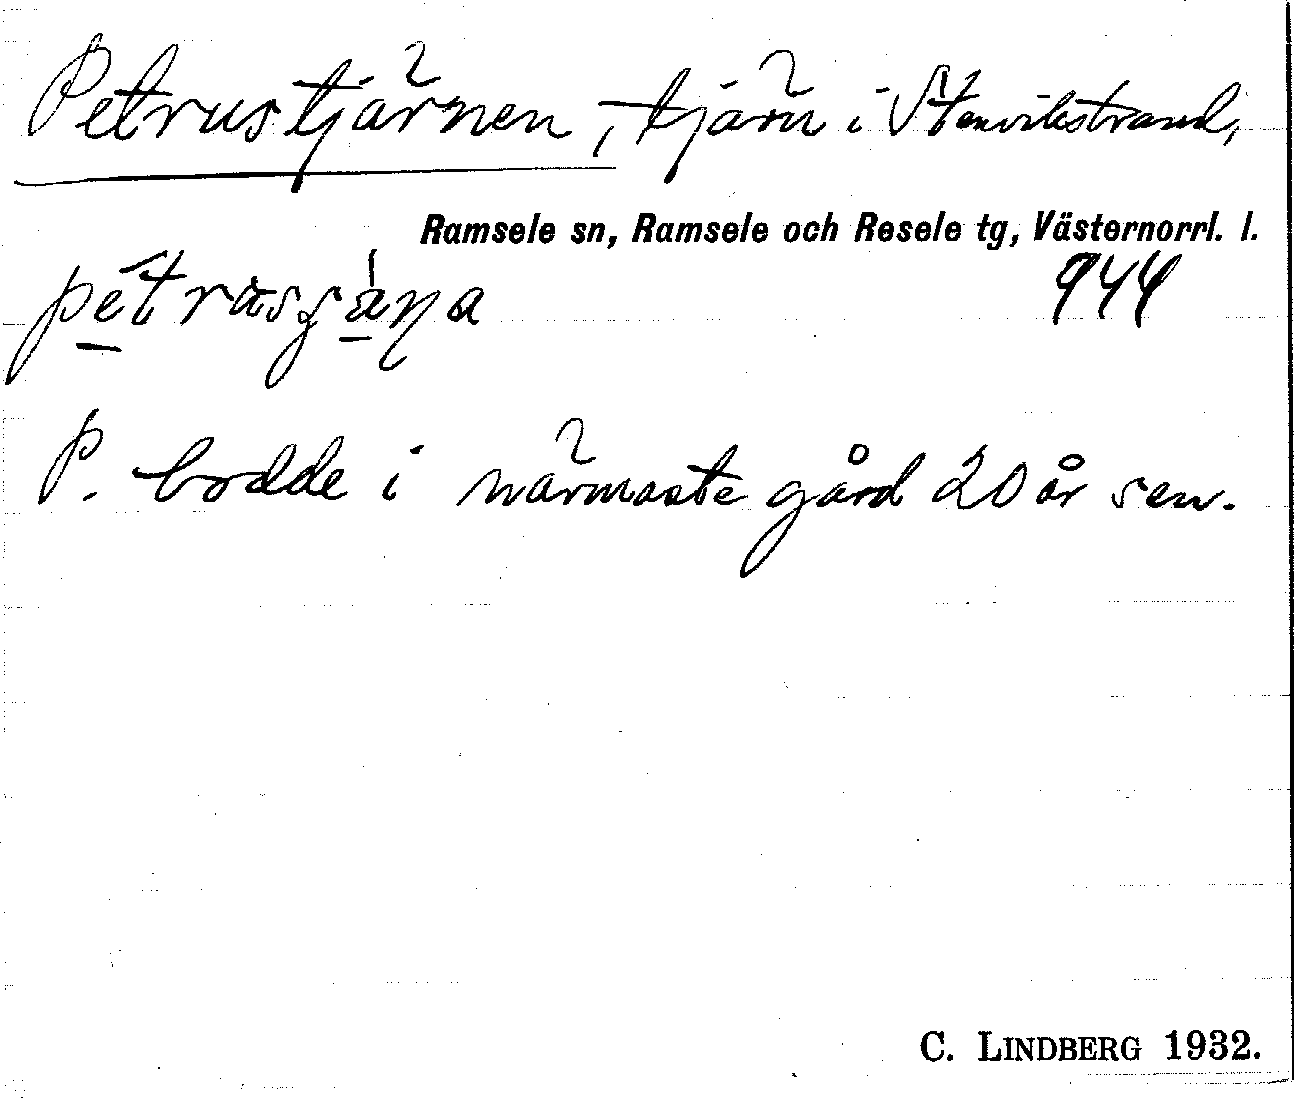 Petrustjärnen, tjärn i Stenvikstrand,
Ramsele sn, Ramsele och Resele tg, Västernorrl. l.
944
P. bodde i närmaste gård 20 år sen.
C. LINDBERG 1932.